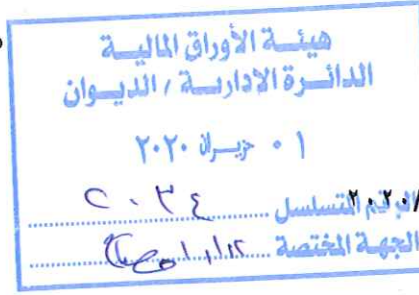 هيئة الأوراق المالية
الدائرة الادارية / الديوان
٠١ حزيران ٢٠٢٠
الرقم المتسلسل ٢٠٣٤
الجهة المختصة